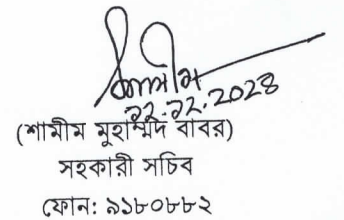 শামীম
২২.১২.2024
(শামীম মুহাম্মদ বাবর)
সহকারী সচিব
ফোন: ৯১৮০৮৮২